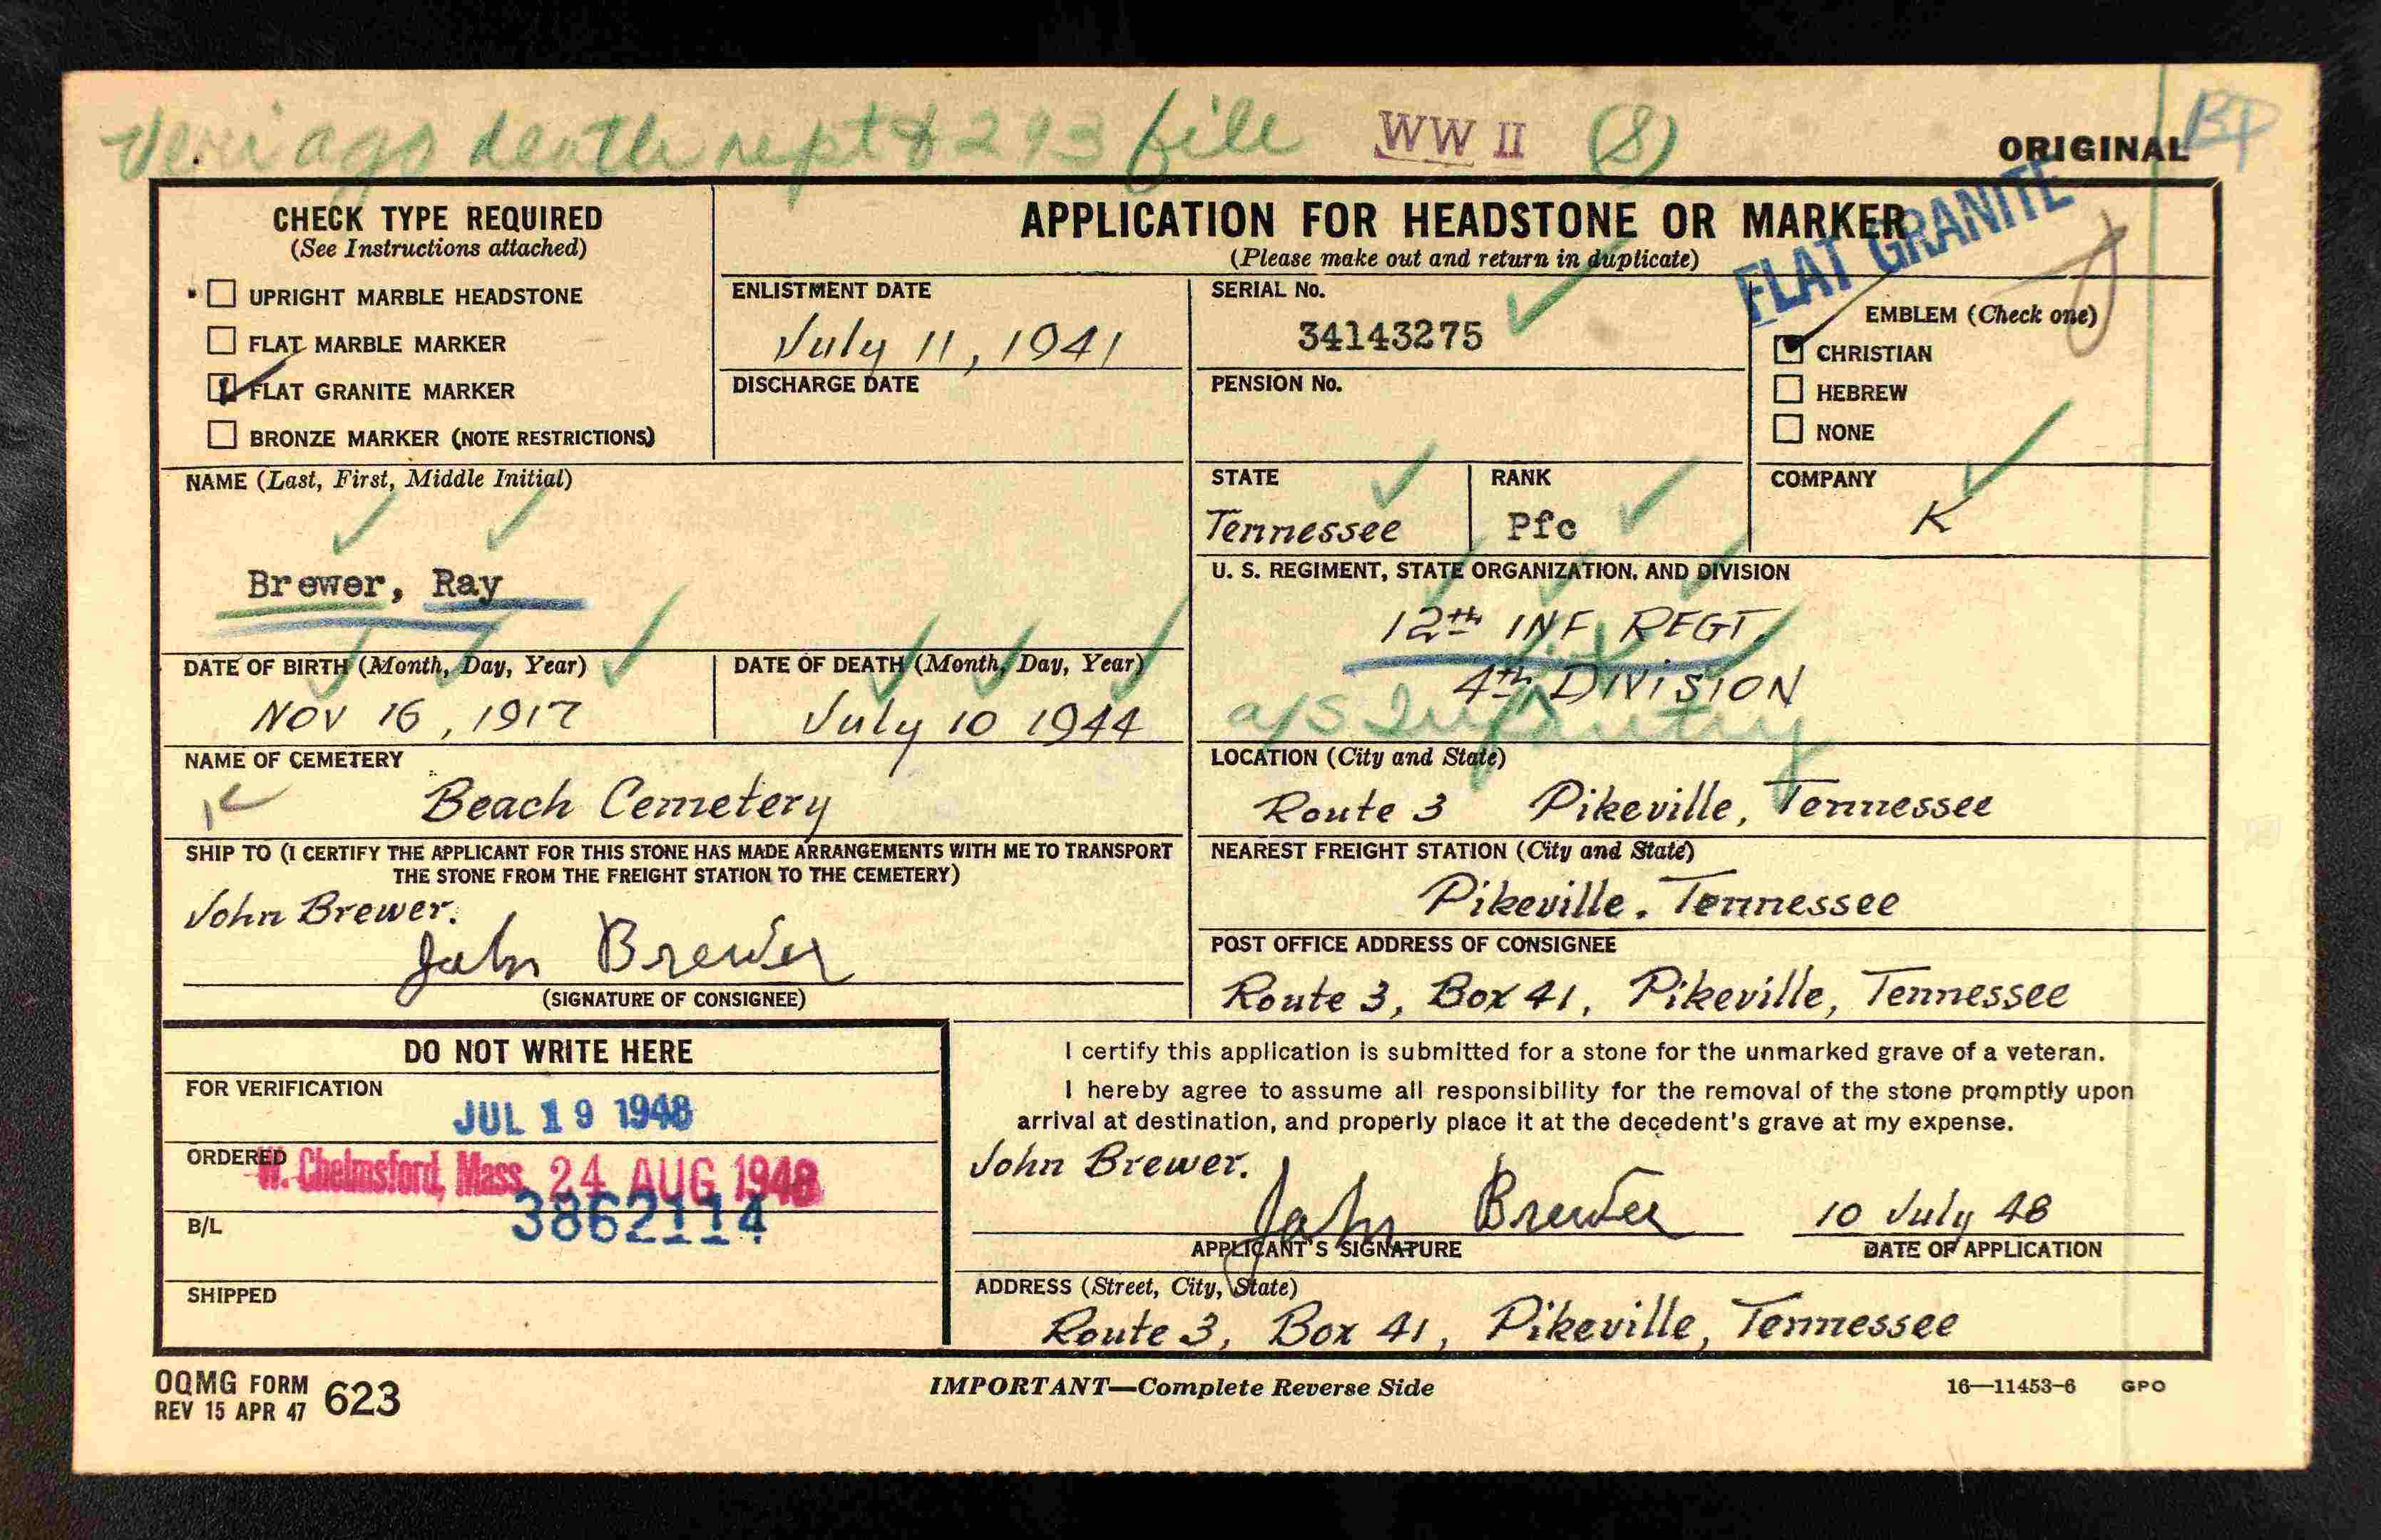 Veri ago death rept & 293 file WW II (S) ORIGINAL
FLAT GRANITE
CHECK TYPE REQUIRED
(See Instructions attached)
UPRIGHT MARBLE HEADSTONE
FLAT MARBLE MARKER
FLAT GRANITE MARKER
BRONZE MARKER (NOTE RESTRICTIONS)
APPLICATION FOR HEADSTONE OR MARKER
(Please make out and return in duplicate)
ENLISTMENT DATE
July 11, 1941
DISCHARGE DATE
SERIAL No.
34143275
PENSION No.
EMBLEM (Check one)
CHRISTIAN
HEBREW
NONE
NAME (Last, First, Middle Initial)
Brewer, Ray
STATE
Tennessee
RANK
Pfc
COMPANY
K
U. S. REGIMENT, STATE ORGANIZATION, AND DIVISION
12th INF. REGT.
4th DIVISION
a/s Infantry
DATE OF BIRTH (Month, Day, Year)
NOV 16, 1917
DATE OF DEATH (Month, Day, Year)
July 10 1944
NAME OF CEMETERY
Beach Cemetery
LOCATION (City and State)
Route 3 Pikeville, Tennessee
SHIP TO (I CERTIFY THE APPLICANT FOR THIS STONE HAS MADE ARRANGEMENTS WITH ME TO TRANSPORT
THE STONE FROM THE FREIGHT STATION TO THE CEMETERY)
John Brewer.
John Brewer
(SIGNATURE OF CONSIGNEE)
NEAREST FREIGHT STATION (City and State)
Pikeville, Tennessee
POST OFFICE ADDRESS OF CONSIGNEE
Route 3, Box 41, Pikeville, Tennessee
DO NOT WRITE HERE
FOR VERIFICATION
JUL 19 1948
ORDERED
W. Chelmsford, Mass. 24 AUG 1948
B/L
3862114
SHIPPED
I certify this application is submitted for a stone for the unmarked grave of a veteran.
I hereby agree to assume all responsibility for the removal of the stone promptly upon
arrival at destination, and properly place it at the decedent's grave at my expense.
John Brewer.
John Brewer
10 July 48
APPLICANT'S SIGNATURE
DATE OF APPLICATION
ADDRESS (Street, City, State)
Route 3, Box 41, Pikeville, Tennessee
OQMG FORM 623
REV 15 APR 47
IMPORTANT—Complete Reverse Side
16—11453-6 GPO